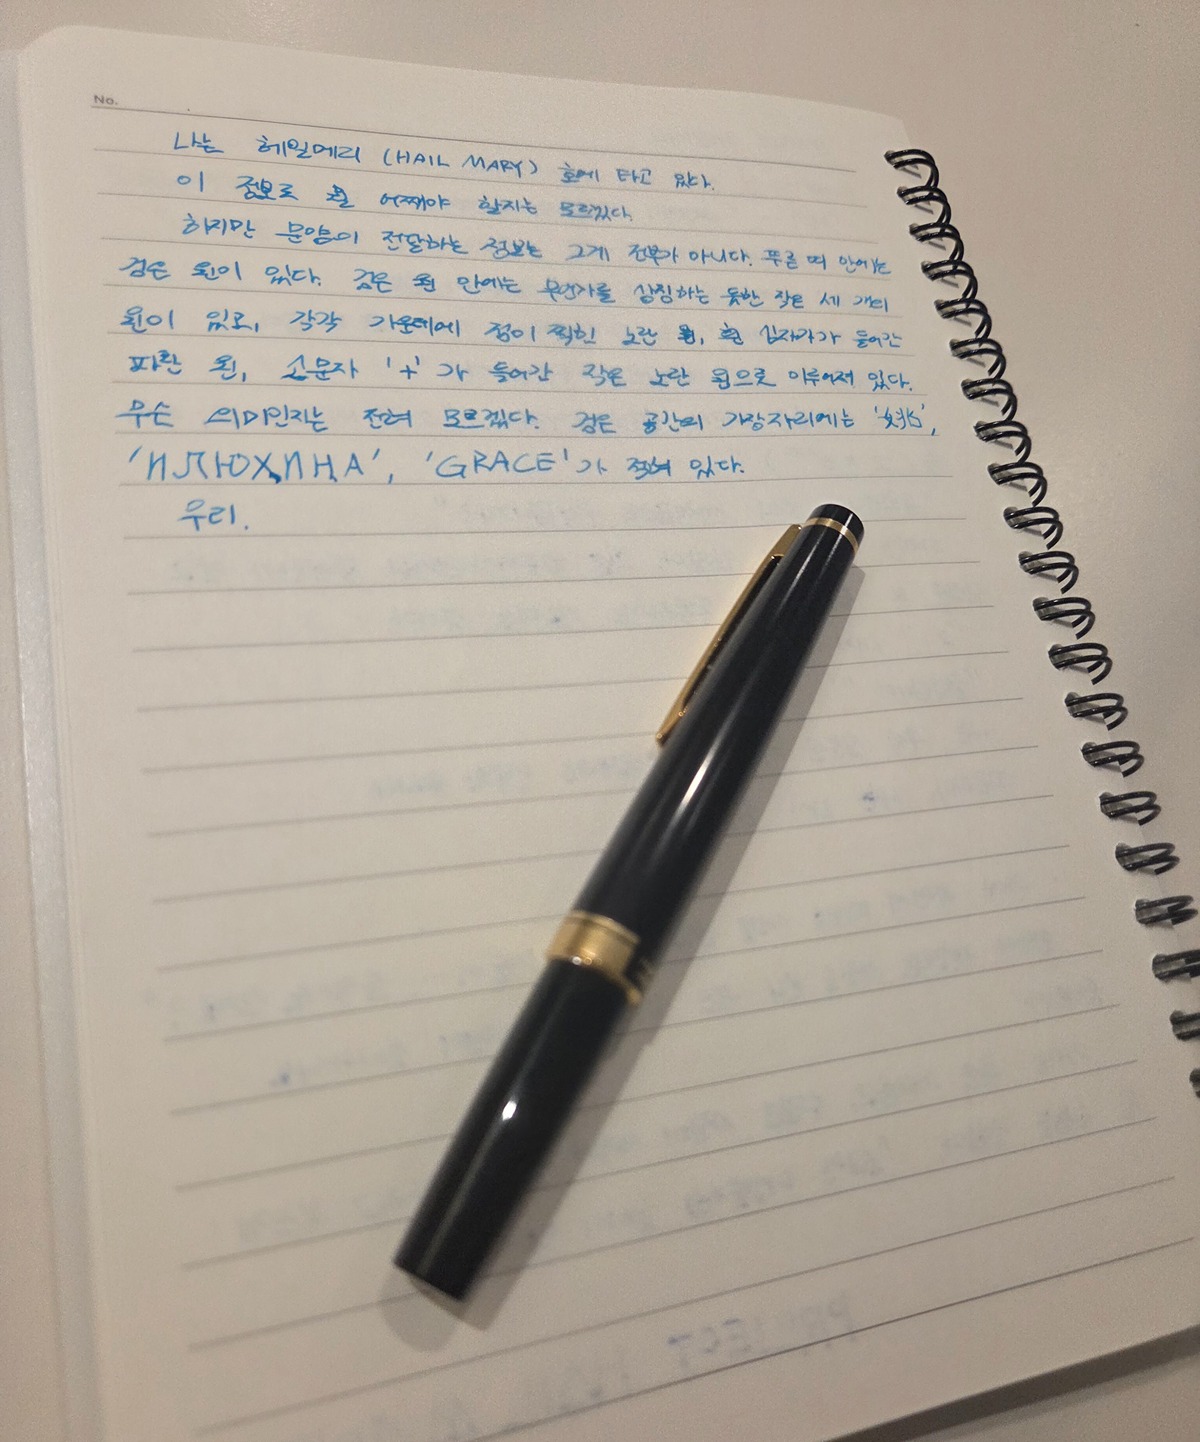 No.
나는 헤일메리 (HAIL MARY) 호에 타고 있다.
이 정보로 뭘 어째야 할지는 모르겠다.
하지만 문양이 전달하는 정보는 그게 전부가 아니다. 푸른 띠 안에는
검은 원이 있다. 검은 원 안에는 무언가를 상징하는 듯한 작은 세 개의
원이 있고, 각각 가운데에 점이 찍힌 노란 원, 흰 십자가가 들어간
파란 원, 소문자 't'가 들어간 작은 노란 원으로 이루어져 있다.
무슨 의미인지는 전혀 모르겠다. 검은 공간의 가장자리에는 '姚',
'ИЛЮХИНА', 'GRACE'가 적혀 있다.
우리.